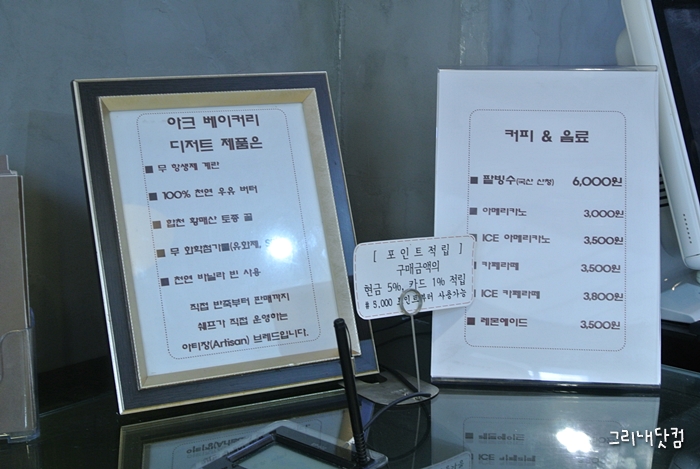 아크 베이커리
디저트 제품은
■ 무 항생제 계란
■ 100% 천연 우유 버터
■ 합천 황매산 토종 꿀
■ 무 화학첨가물(유화제,
■ 천연 바닐라 빈 사용
직접 반죽부터 판매까지
쉐프가 직접 운영하는
아티장(Artisan) 브레드입니다.
[ 포인트적립 ]
구매금액의
현금 5%, 카드 1% 적립
₩ 5,000 포인트부터 사용가능
커피 & 음료
■ 팥빙수(국산 산청) 6,000원
■ 아메리카노 3,000원
■ ICE 아메리카노 3,500원
■ 카페라떼 3,500원
■ ICE 카페라떼 3,800원
■ 레몬에이드 3,500원
그리내닷컴